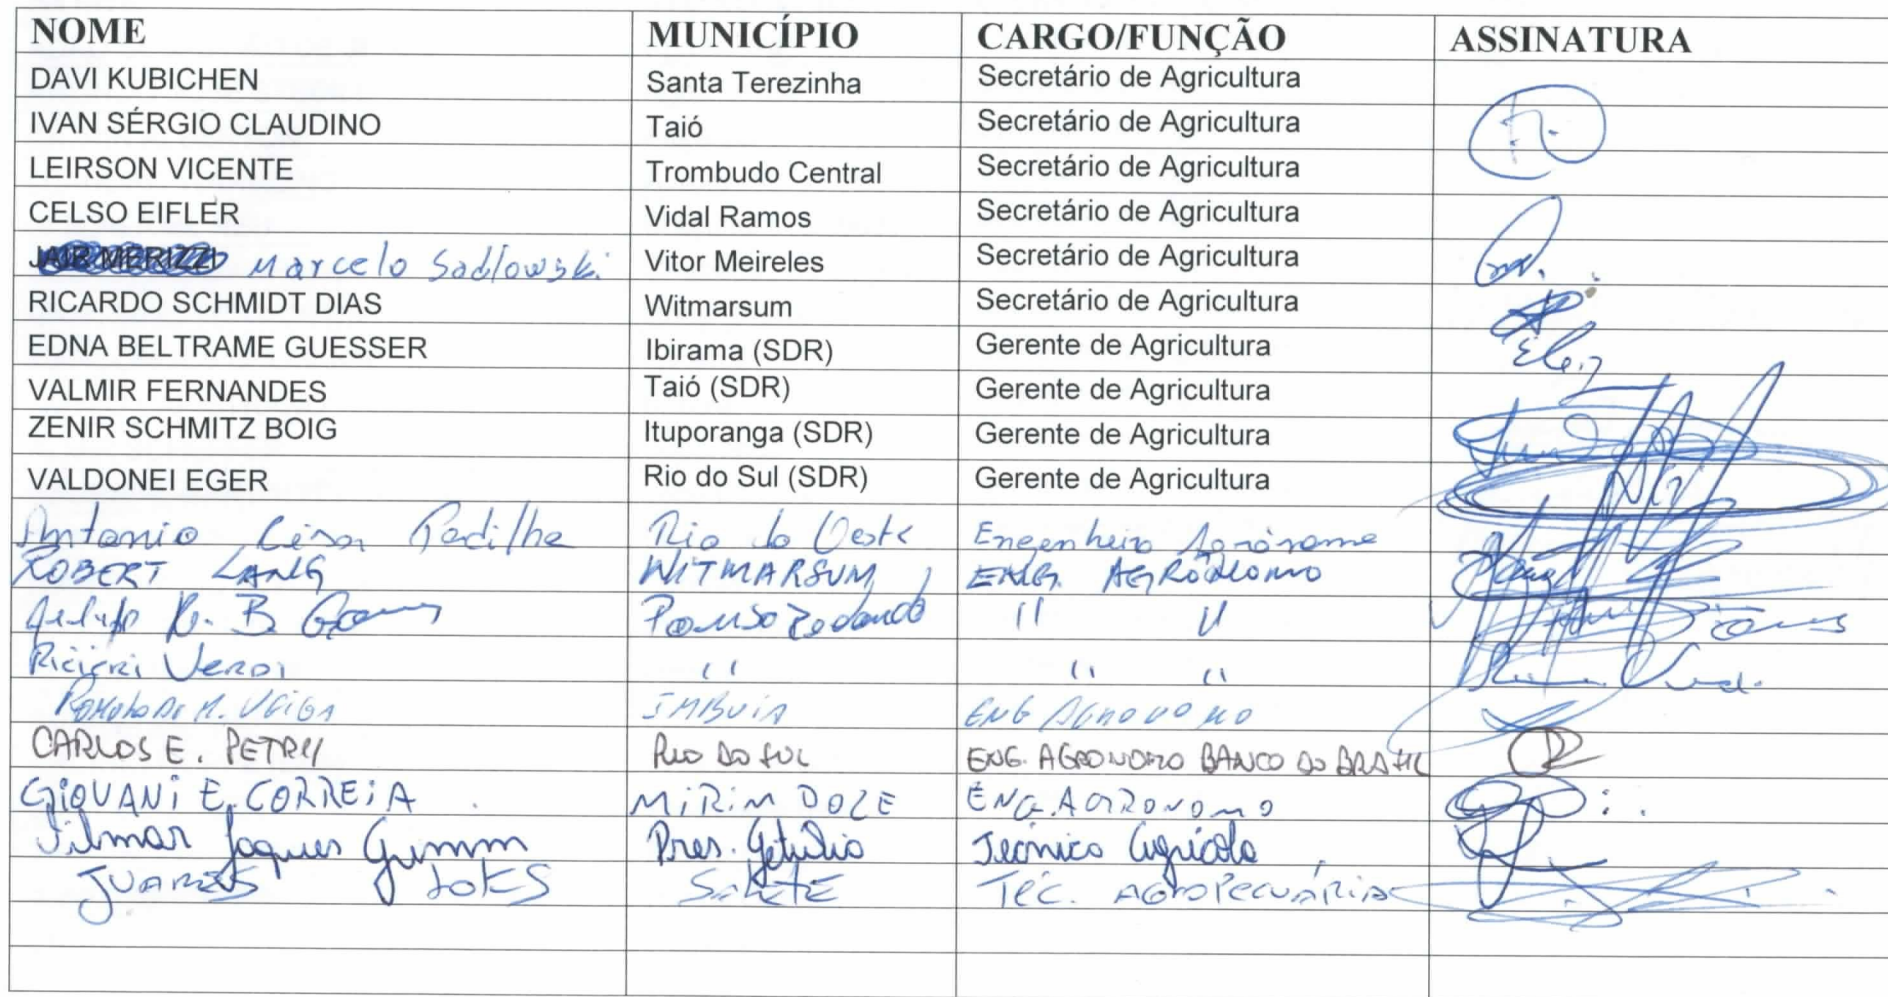 NOME MUNICÍPIO CARGO/FUNÇÃO ASSINATURA
DAVI KUBICHEN Santa Terezinha Secretário de Agricultura
IVAN SÉRGIO CLAUDINO Taió Secretário de Agricultura
LEIRSON VICENTE Trombudo Central Secretário de Agricultura
CELSO EIFLER Vidal Ramos Secretário de Agricultura
JAIR MERIZZI Marcelo Sadlowski Vitor Meireles Secretário de Agricultura
RICARDO SCHMIDT DIAS Witmarsum Secretário de Agricultura
EDNA BELTRAME GUESSER Ibirama (SDR) Gerente de Agricultura
VALMIR FERNANDES Taió (SDR) Gerente de Agricultura
ZENIR SCHMITZ BOIG Ituporanga (SDR) Gerente de Agricultura
VALDONEI EGER Rio do Sul (SDR) Gerente de Agricultura
Antonio Padilha Rio do Oeste Engenheiro Agrônomo
ROBERT LANG WITMARSUM ENG. AGRÔNOMO
R. B. Pouso Redondo " "
Ricieri Verdi " " "
M. VEIGA IMBUIA ENG AGRONOMO
CARLOS E. PETRY RIO DO SUL ENG. AGRONOMO BANCO DO BRASIL
GIOVANI E. CORREIA MIRIM DOCE ENG. AGRONOMO
Silmar Jaques Gumm Pres. Getúlio Técnico Agrícola
JUAREZ SALETE TEC. AGROPECUÁRIA